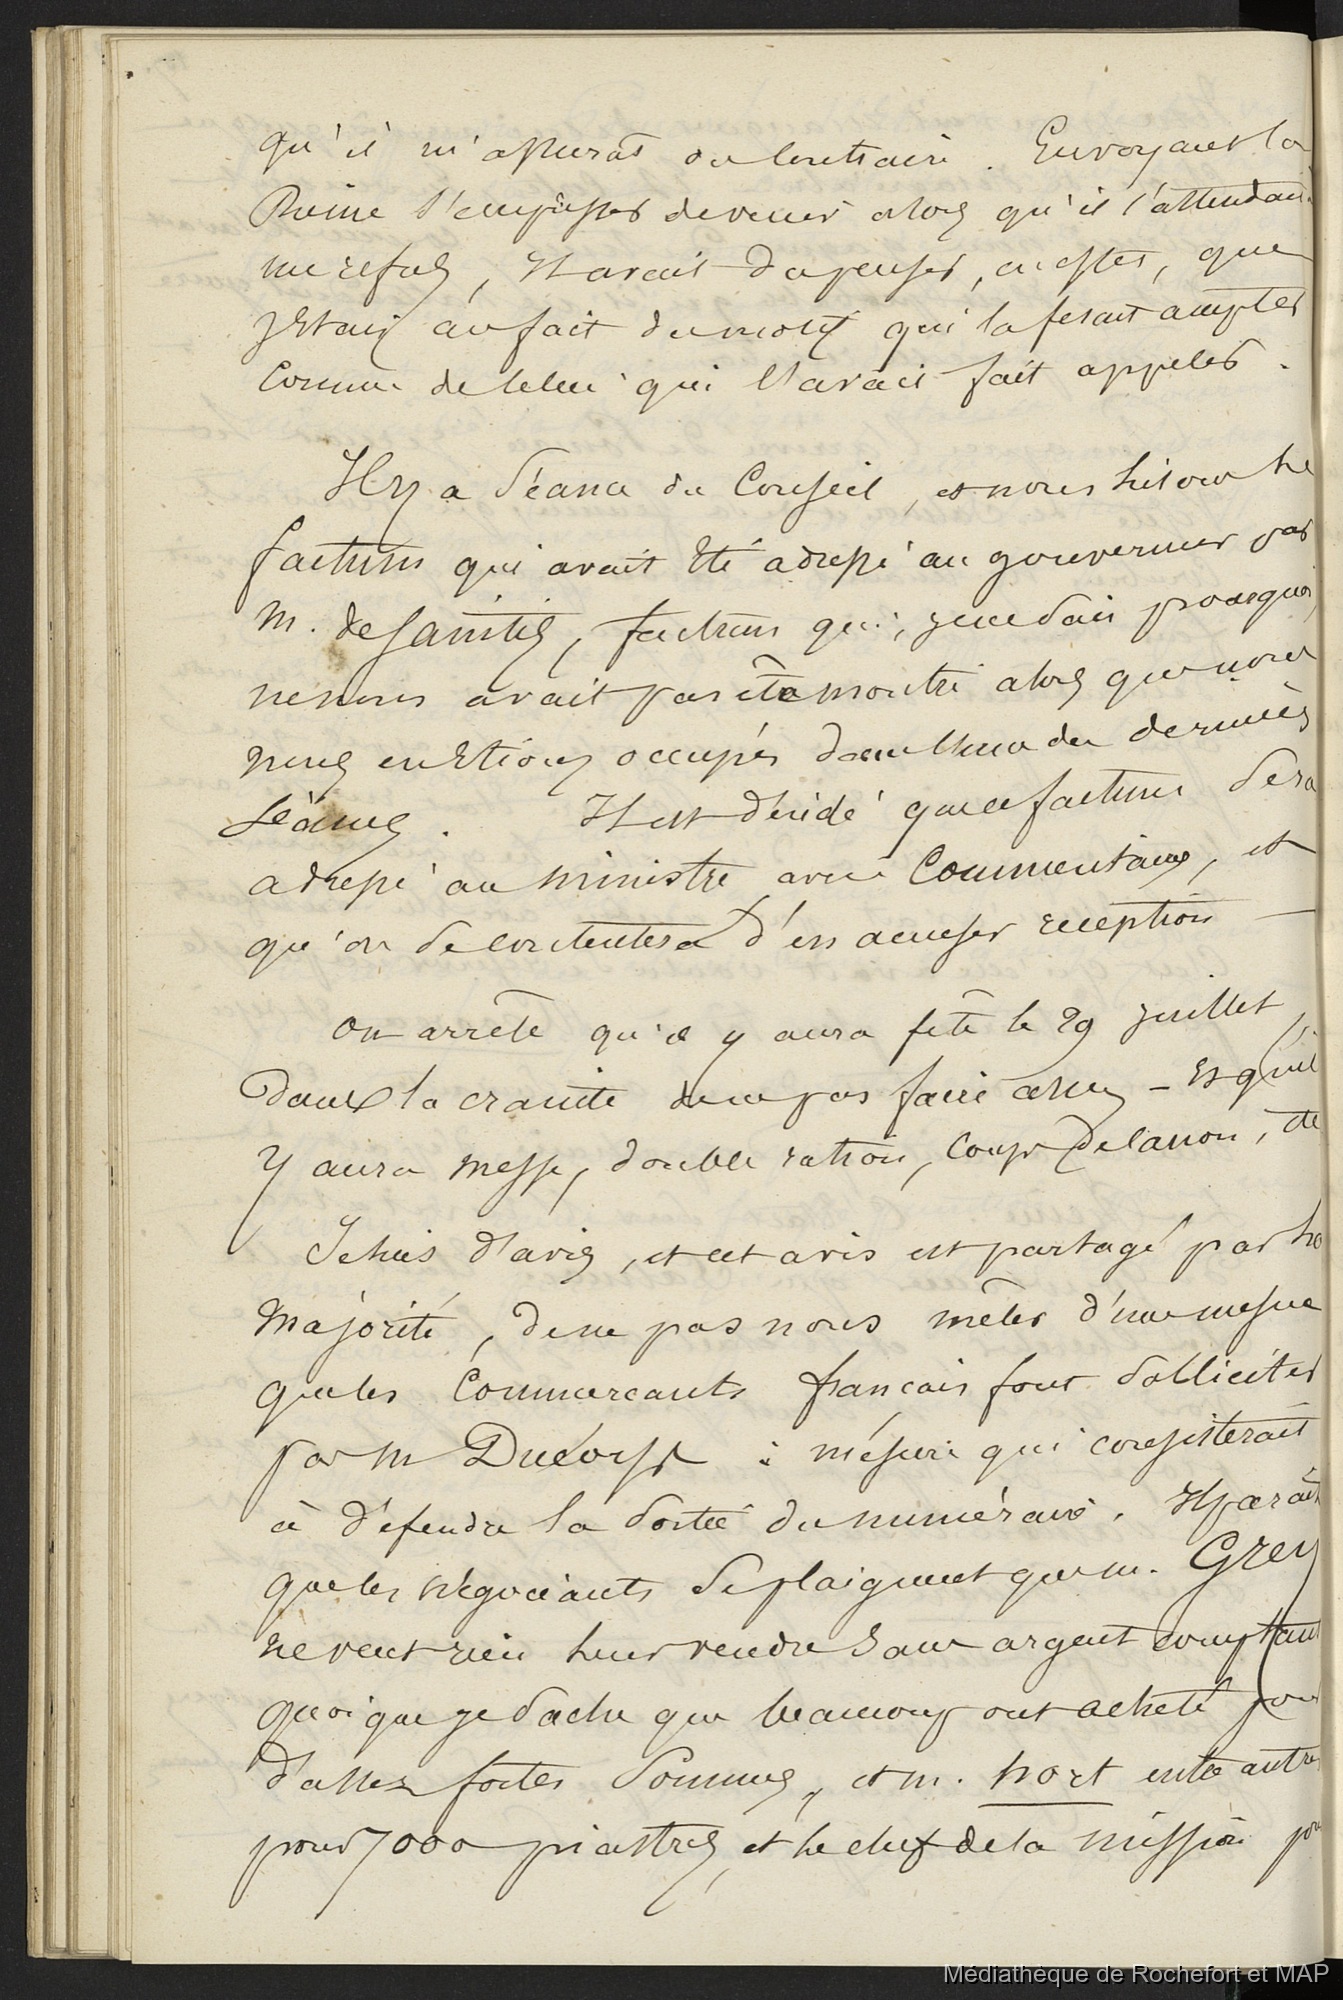 qu'il m'assurât du contraire. En voyant la
Reine s'empresser de venir alors qu'il s'attendait
un refus, il avait du penser, en effet, que
j'étais au fait du motif qui la fesait accepter
comme de celui qui l'avait fait appeler.
Il y a séance du Conseil, et nous lisons le
factum qui avait été adressé au gouverneur par
M. de factum qui, je ne sais pourquoi,
ne nous avait pas été montré alors que nous
nous en étions occupés dans l'une des dernières
séances. Il est décidé que ce factum sera
adressé au ministre avec Commentaires, et
qu'on se contentera d'en accuser reception —
on arrête qu'il y aura fête le 29 juillet,
dans la crainte de ne pas faire assez — Et qu'il
y aura messe, double ration, coups de canon, etc
Je suis d'avis, et cet avis est partagé par la
majorité, de ne pas nous mêler d'une mesure
que les Commercants français font solliciter
par M : mésure qui consisterait
à défendre la sortie du numéraire. Il parait
que les négociants se plaignent que M. Grey
ne veut rien leur vendre sans argent comptant
quoique je sache que beaucoup ont acheté pour
d'assez fortes sommes, et M. hort entre autres
pour 7000 piastres, et le chef de la mission pour
Médiathèque de Rochefort et MAP